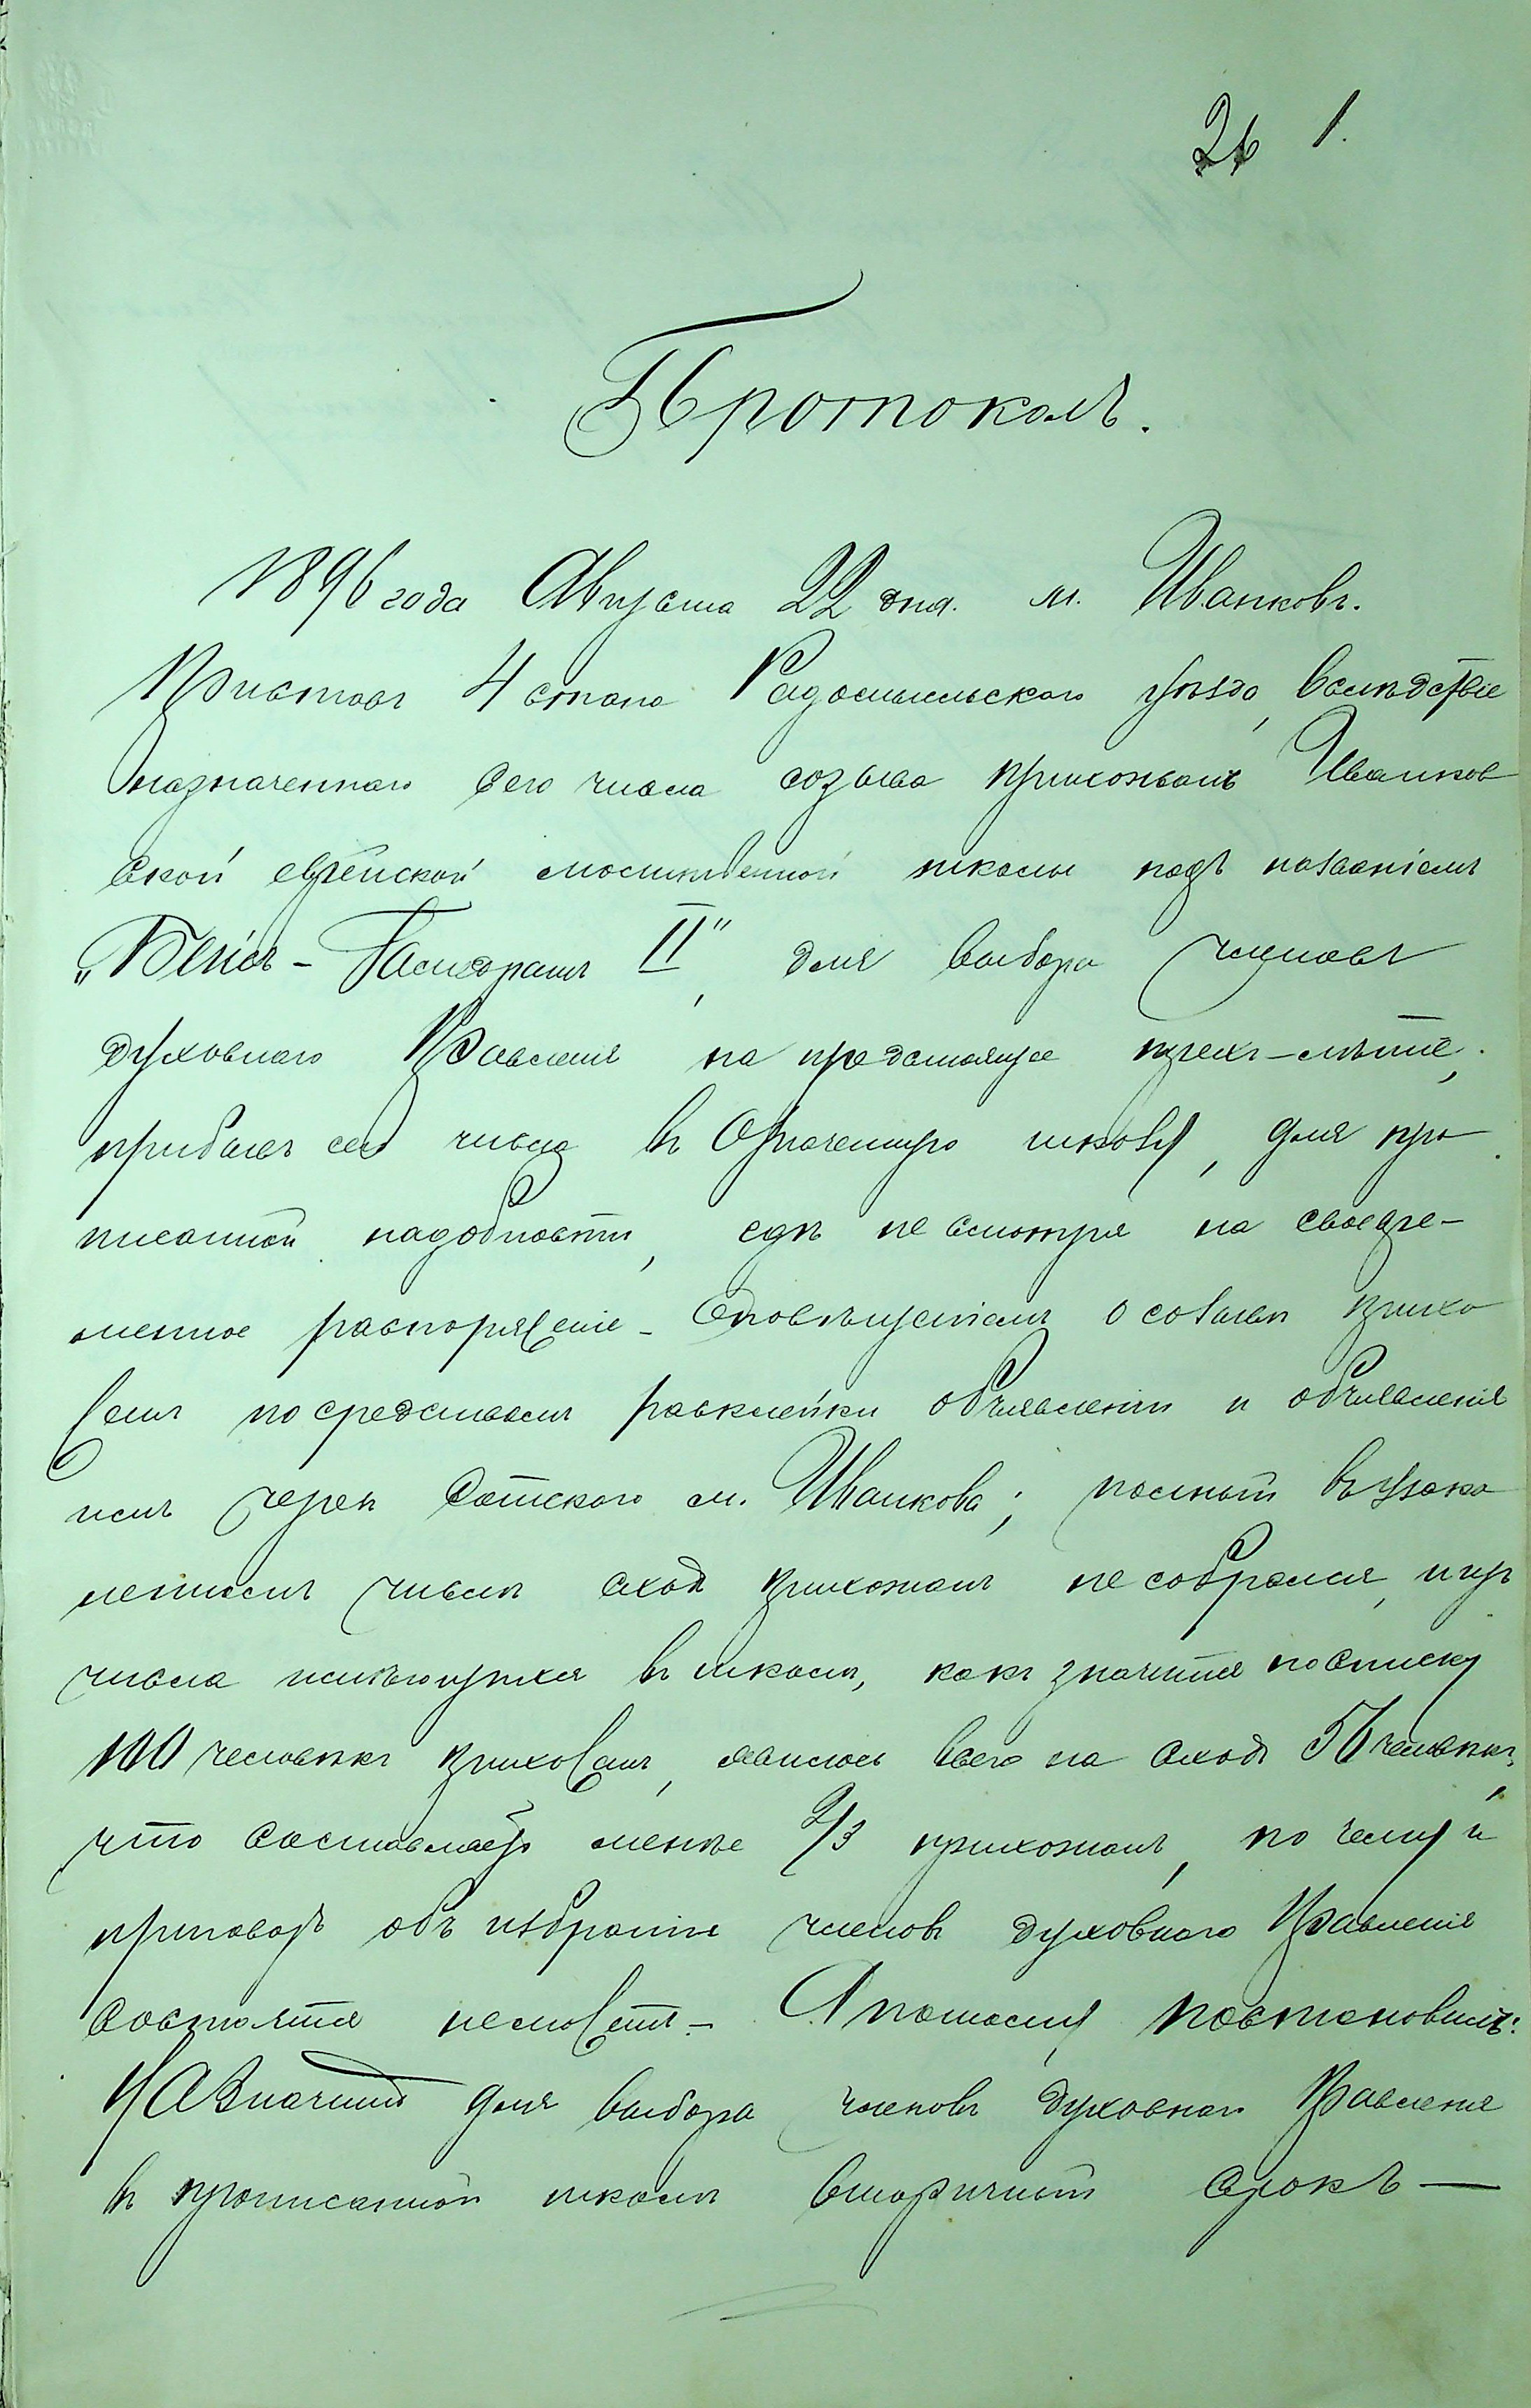 26 1.
Протоколъ.
1896 года Августа 22 дня. м. Иванковъ.
Приставъ 4 стана Радомысльского уѣзда, вслѣдствіе
назначеннаго сего числа созыва прихожанъ Иванков
ской еврейской молитвенной школы подъ названіемъ
„Бейсъ-Гамедрашъ II", для выбора членовъ
духовнаго Правленія на предстоящее трехъ-лѣтіе,
прибылъ сего числа въ Означенную школу, для про
писанной надобности, гдѣ не смотря на своевре-
менное распоряженіе - Оповѣщеніемъ о созывѣ прихо
жанъ посредствомъ расклейки объявленій и объявленія
имъ чрезъ Сотского м. Иванкова; полный въ узако
ненномъ числѣ сходъ прихожанъ не собрался, изъ
числа имѣющихся въ школѣ, какъ значится по списку
100 человѣкъ прихожанъ, явилось всего на сходъ 56 человѣкъ,
что составляетъ менѣе 2/3 прихожанъ, по чему и
приговоръ объ избраніи членовъ духовнаго Правленія
состоятся не можетъ - А потому постановилъ:
Назначить для выбора членовъ духовнаго Правленія
въ прописанной школѣ вторичный срокъ —